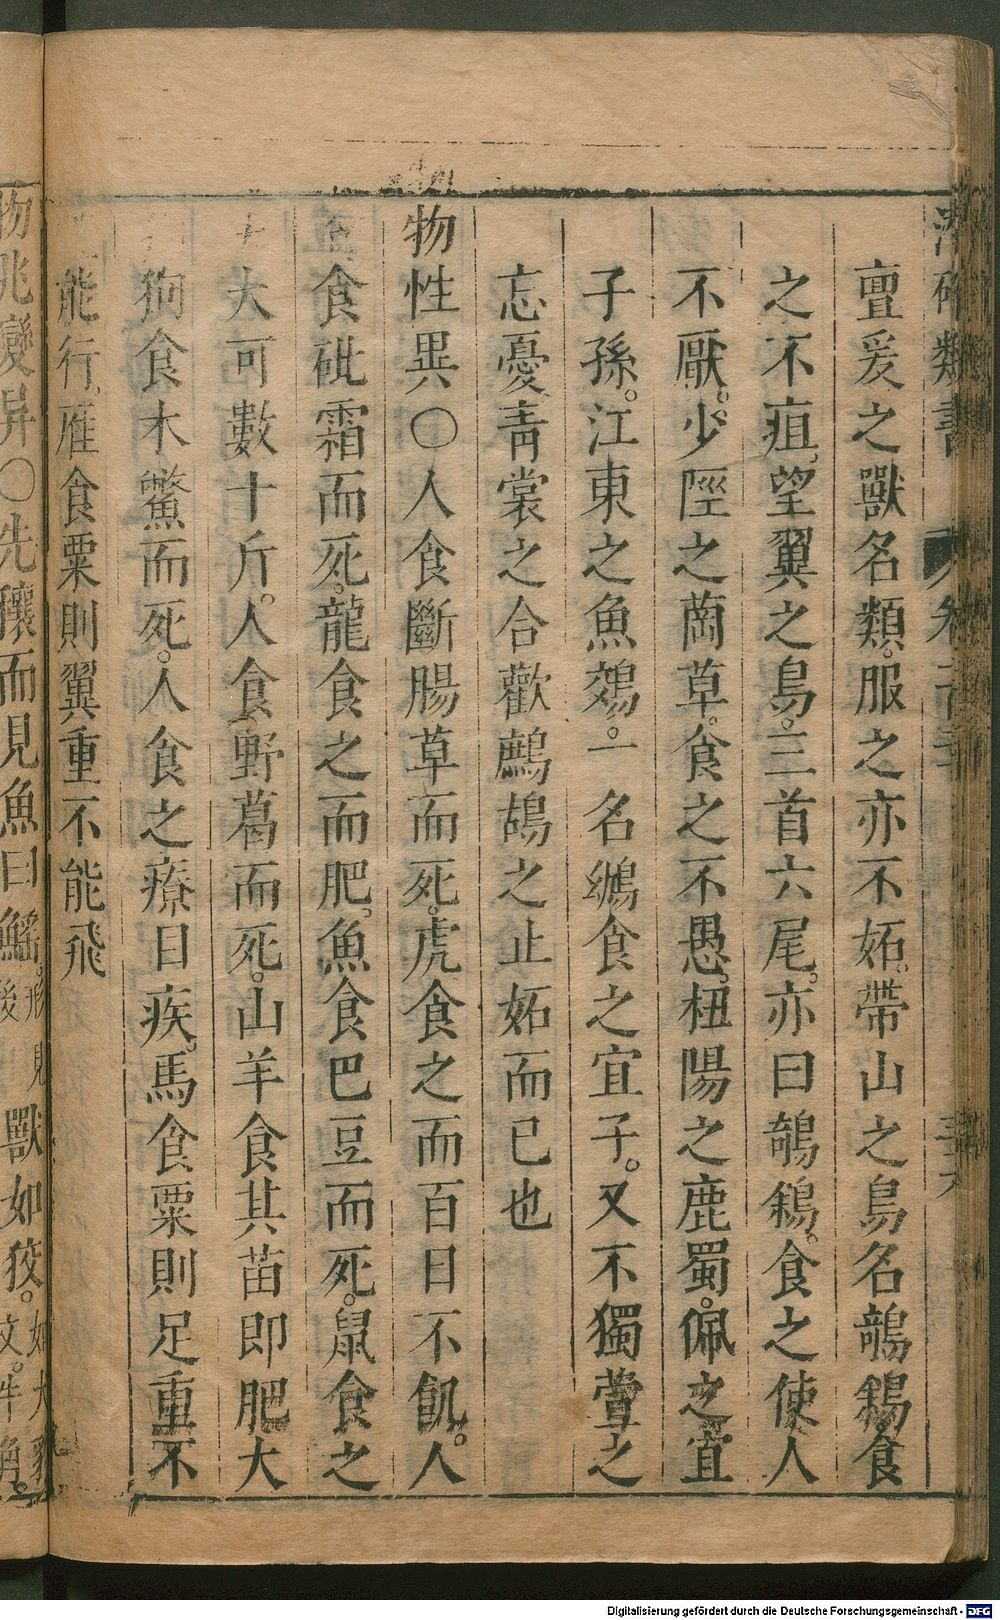 亶爰之獸名類。服之亦不妬。帶山之鳥名鵸鵌食
之不疽。望翼之鳥。三首六尾。亦曰鵸鵌。食之使人
不厭。少陘之䔄草。食之不愚。杻陽之鹿蜀。佩之宜
子孫。江東之魚鵁。一名鳽食之宜子。又不獨萱之
忘憂靑裳之合歡鶊鶊之止妬而已也
物性異○人食斷腸草而死。虎食之而百日不飢。人
食砒霜而死。龍食之而肥。魚食巴豆而死。鼠食之
大可數十斤。人食野葛而死。山羊食其苗即肥大
狗食木鱉而死。人食之療目疾。馬食粟則足重不
能行。雁食粟則翼重不能飛
物兆變异○先穰而見魚曰鰩。形見後
獸如狡。如犬豹文。牛角。
Digitalisierung gefördert durch die Deutsche Forschungsgemeinschaft - DFG